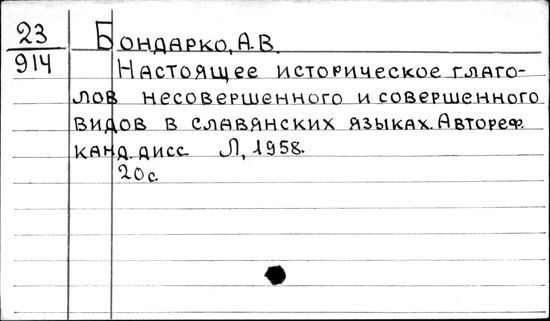 23
914
Бондарко, А.В.
Настоящее историческое глаго-
лов несовершенного и совершенного
видов в славянских языках. Автореф.
канд. дисс. Л, 1958.
20с.